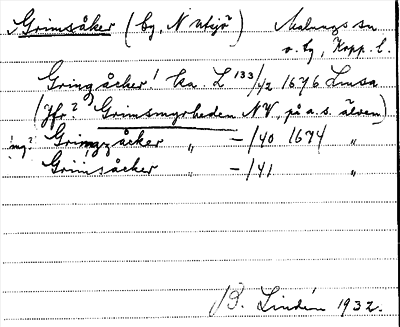 Grimsåker (by, N Utsjö) Malungs sn
o. tg, Kopp. l.
Gringåcker! ka. L 133/42 1676 Lmsa
(Jfr? Grimsmyrheden NV, på a. s. älven)
!ng? Gringzåcker " -/40 1674 "
Grimsåcker " -/41 "
B. Lindén 1932.